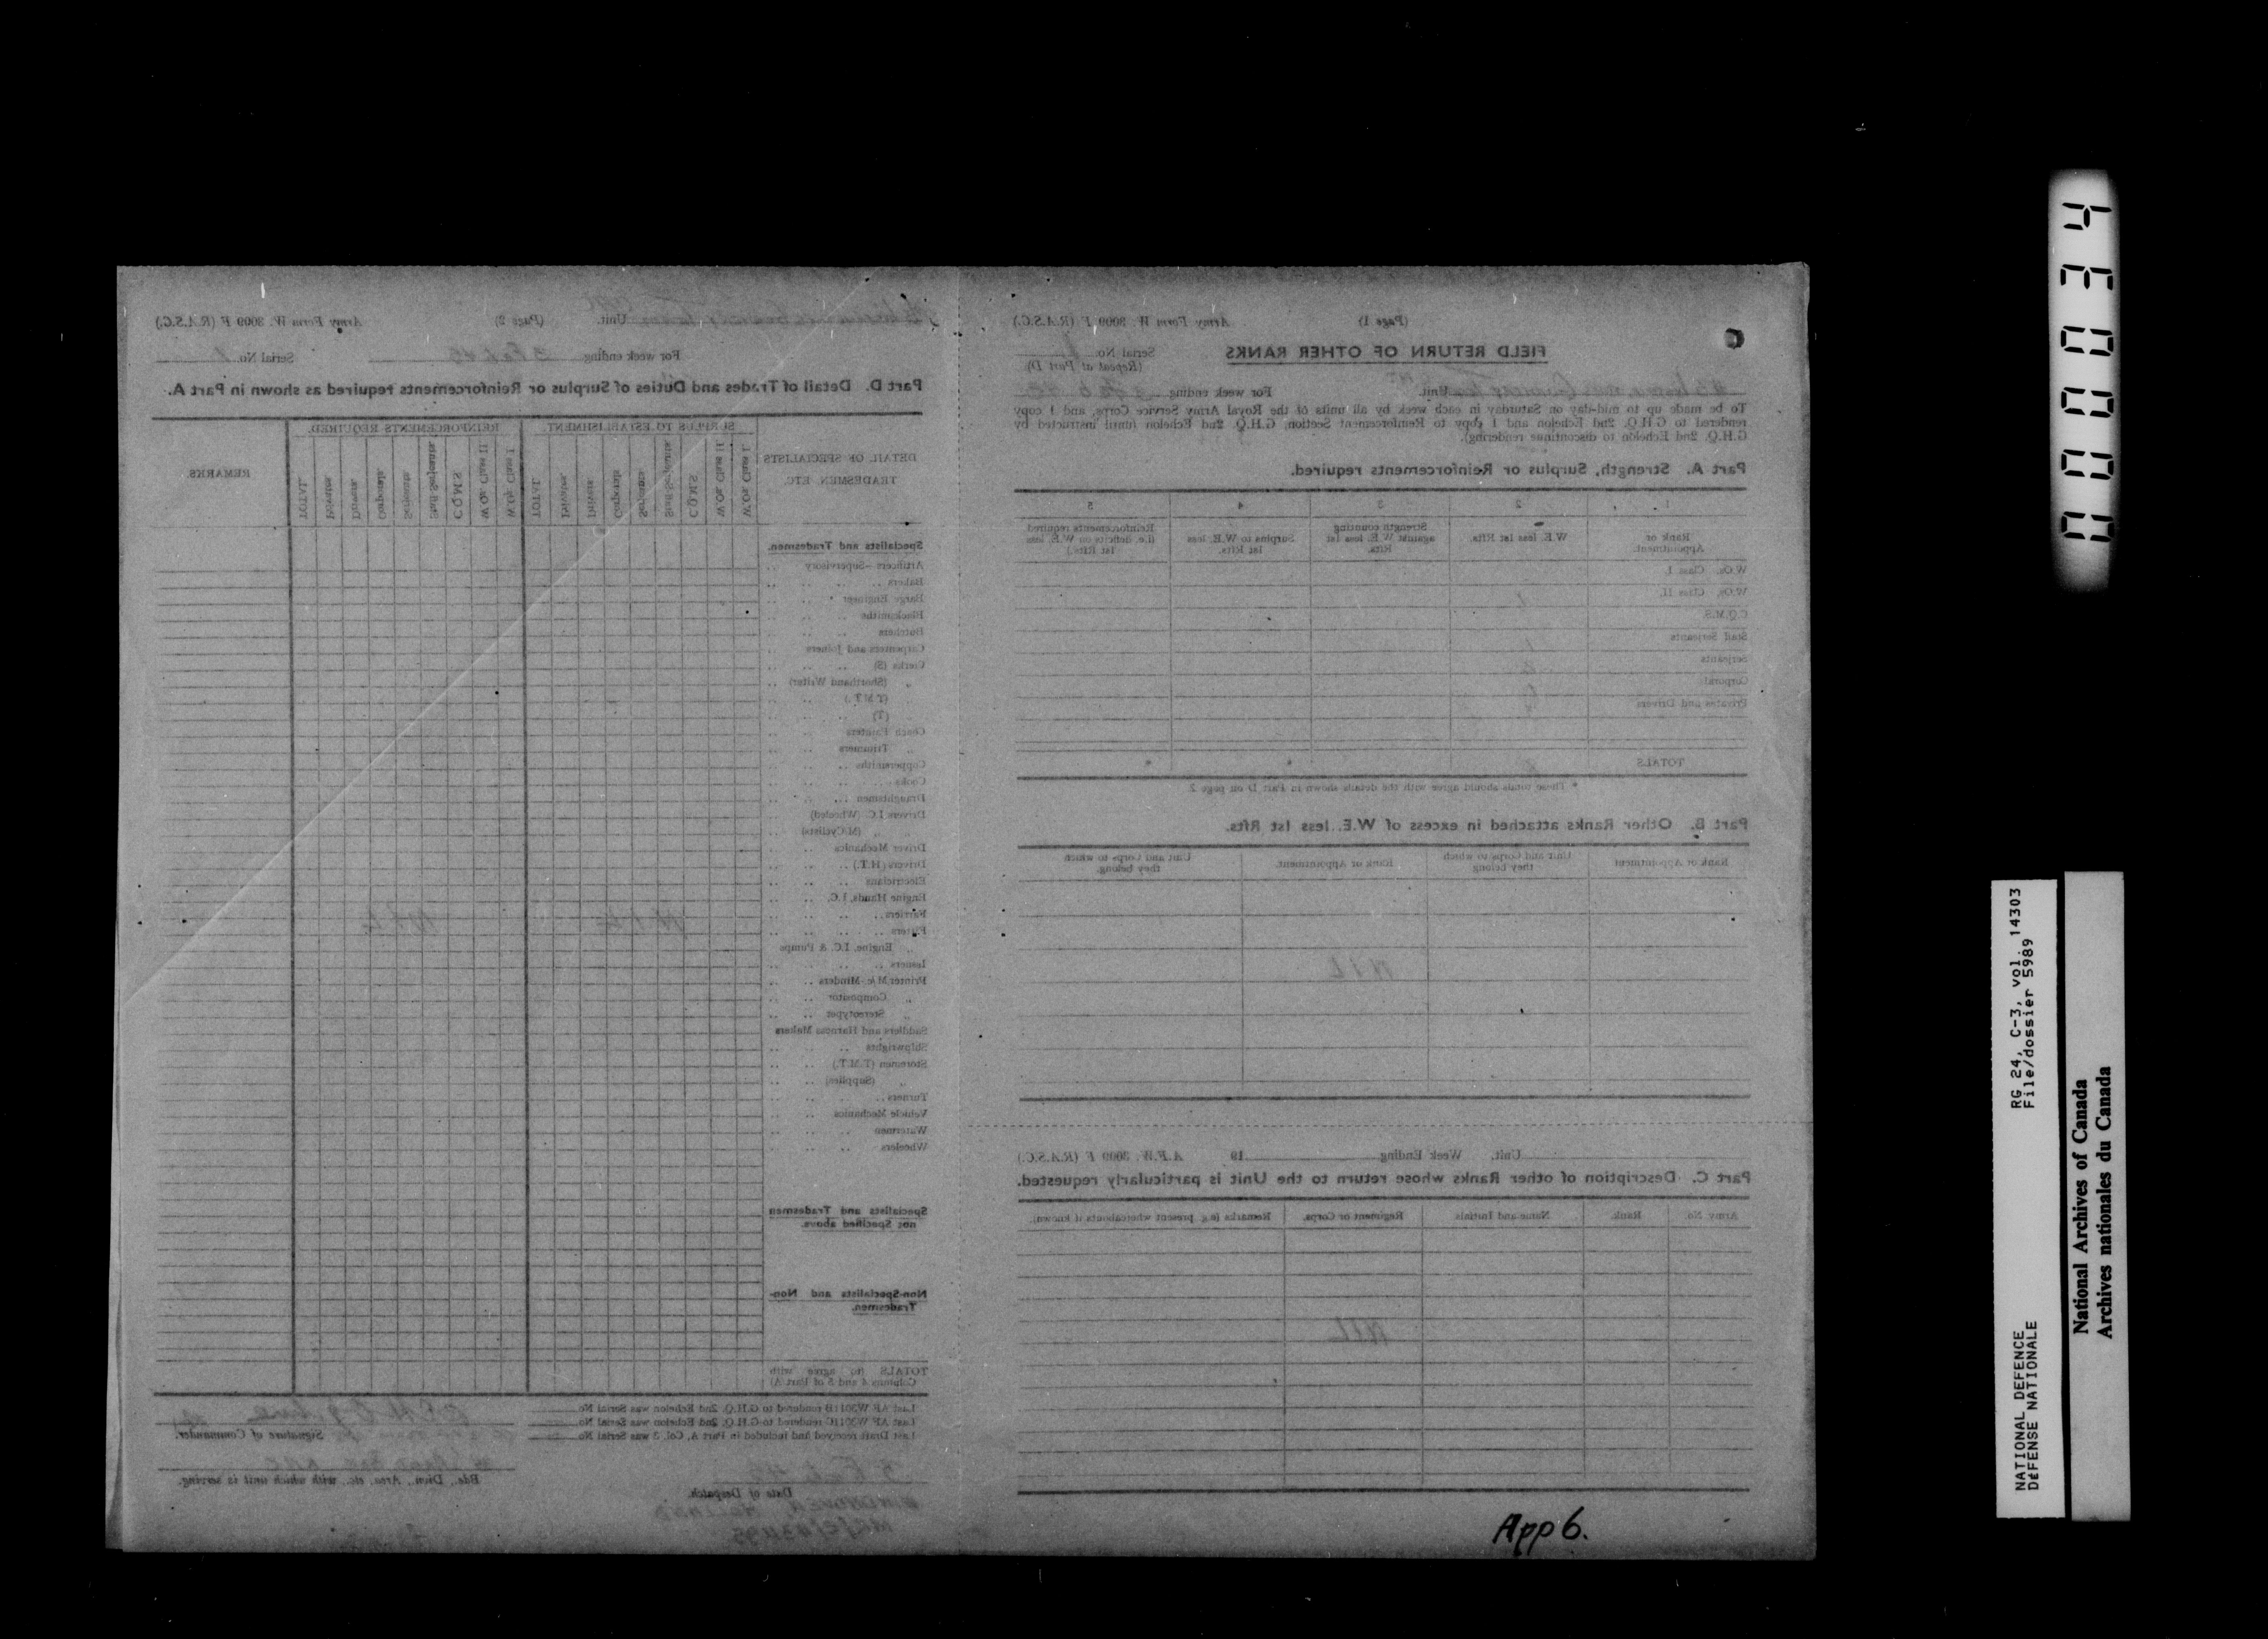 (Page 1) Army Form W. 3009 F (R.A.S.C.)
FIELD RETURN OF OTHER RANKS
Serial No.
(Repeat at Part D)
Unit. For week ending
To be made up to mid-day on Saturday in each week by all units of the Royal Army Service Corps, and 1 copy
rendered to G.H.Q. 2nd Echelon and 1 copy to Reinforcement Section, G.H.Q. 2nd Echelon (until instructed by
G.H.Q. 2nd Echelon to discontinue rendering).
Part A. Strength, Surplus or Reinforcements required.
1 2 3 4 5
Rank or Appointment.
W.E. less 1st Rfts.
Strength counting against W.E. less 1st Rfts.
Surplus to W.E. less 1st Rfts.
Reinforcements required (i.e. deficits on W.E. less 1st Rfts.)
W.Os. Class I.
W.Os. Class II.
C.Q.M.S.
Staff Serjeants
Serjeants
Corporal
Privates and Drivers
TOTALS * *
* These totals should agree with the details shown in Part D on page 2
Part B. Other Ranks attached in excess of W.E. less 1st Rfts.
Rank or Appointment
Unit and Corps to which they belong
Rank or Appointment.
Unit and Corps to which they belong.
NIL
Unit. Week Ending 19 A.F.W. 3009 F (R.A.S.C.)
Part C. Description of other Ranks whose return to the Unit is particularly requested.
Army No. Rank. Name and Initials Regiment or Corps. Remarks (e.g. present whereabouts if known).
NIL
App 6.
Unit. (Page 2) Army Form W. 3009 F (R.A.S.C.)
For week ending 3 Feb 45 Serial No.
Part D. Detail of Trades and Duties of Surplus or Reinforcements required as shown in Part A.
DETAIL OF SPECIALISTS
TRADESMEN ETC.
SURPLUS TO ESTABLISHMENT.
W.Os. Class I.
W.Os. Class II.
C.Q.M.S.
Staff Serjeants
Serjeants
Corporals
Drivers.
Privates.
TOTAL
REINFORCEMENTS REQUIRED.
W.Os. Class I
W.Os. Class II
C.Q.M.S
Staff Serjeants.
Serjeants.
Corporals.
Drivers.
Privates.
TOTAL.
REMARKS.
Specialists and Tradesmen.
Artificers-Supervisory
Bakers
Barge Engineer
Blacksmiths
Butchers
Carpenters and Joiners
Clerks (S)
" (Shorthand Writer)
" (T M T.)
" (T)
Coach Painters
" Trimmers
Coppersmiths
Cooks
Draughtsmen
Drivers I.C. (Wheeled)
" " (M/Cyclists)
Driver Mechanics
Drivers (H.T.)
Electricians
Engine Hands, I.C.
Farriers
Fitters
" Engine, I.C. & Pumps
Issuers
Printer M/c Minders
" Compositor
" Stereotyper
Saddlers and Harness Makers
Shipwrights
Storeman (T.M.T.)
" (Supplies)
Turners
Vehicle Mechanics
Watermen
Wheelers
NIL NIL
Specialists and Tradesmen
not Specified above.
Non-Specialists and Non-
Tradesmen.
TOTALS (to agree with
Columns 4 and 5 of Part A)
Last AF W3011B rendered to G.H.Q. 2nd Echelon was Serial No
Last AF W3011C rendered to G.H.Q. 2nd Echelon was Serial No
Last Draft received and included in Part A, Col. 3 was Serial No
Signature of Commander.
Bde., Divn., Area, etc., with which unit is serving.
Date of Despatch.
000034
RG 24, C-3, vol. 14303
File/dossier 5989
NATIONAL DEFENCE
DÉFENSE NATIONALE
National Archives of Canada
Archives nationales du Canada